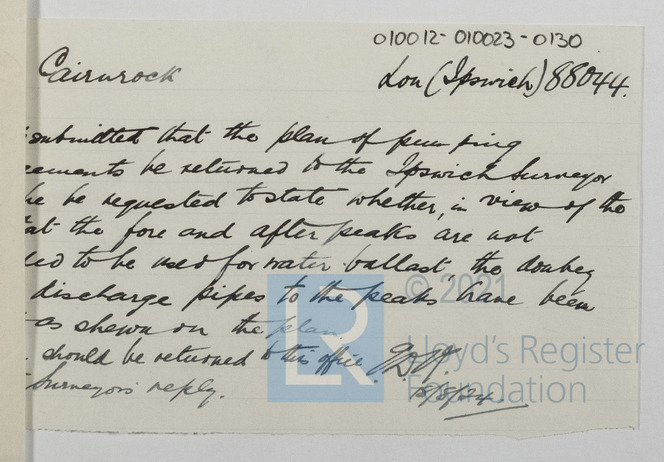 010012-010023-0130
Cairnrock Lon (Ipswich) 88044.
submitted that the plan of pumping
ements be returned to the Ipswich Surveyor
he be requested to state whether, in view of the
at the fore and after peaks are not
ded to be used for water ballast, the
discharge pipes to the peaks have been
as shewn on the plan
should be returned to this office
Surveyor's reply.
© 2021
Lloyd's Register
Foundation
LR